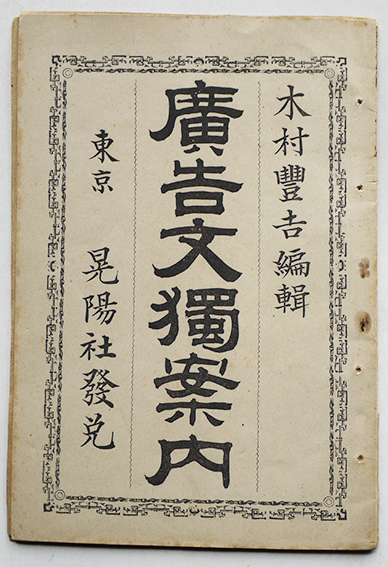 木村豐吉編輯
廣告文獨案内
東京 晃陽社發兌